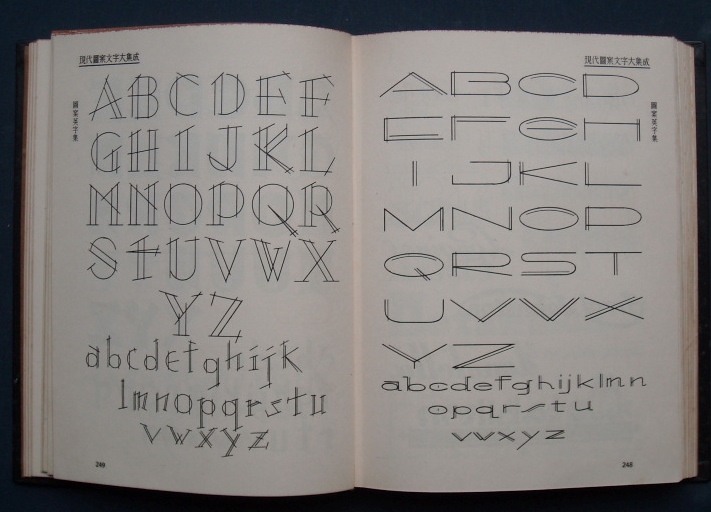 現代圖案文字大集成
圖案英字集
ABCDEF
GHIJKL
MNOPQR
STUVWX
YZ
abcdefghijk
lmnopqrstu
vwxyz
249
現代圖案文字大集成
圖案英字集
ABCD
EFGH
IJKL
MNOP
QRST
UVWX
YZ
abcdefghijklmn
opqrstu
vwxyz
248